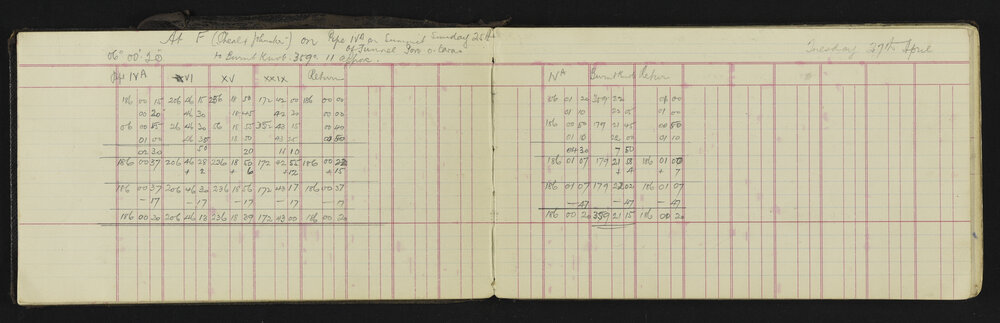 At F on Pipe IVA on Summit Sunday 25th
of Tunnel
06° 00' 20" to Burnt Knob. 359° 11 approx.
IVA XVI XV XXIX Return
186 00 15 206 46 15 236 18 50 172 42 00 186 00 00
00 20 46 30 18 45 42 30 00 00
06 00 55 26 46 30 56 18 55 352 43 15 00 40
01 00 46 35 18 50 43 25 00 50
02 30 50 20 11 10
186 00 37 206 46 28 236 18 50 172 42 55 186 00 22
+ 2 + 6 +12 + 15
186 00 37 206 46 30 236 18 56 172 43 17 186 00 37
- 17 - 17 - 17 - 17 - 17
186 00 20 206 46 13 236 18 39 172 43 00 186 00 20
Tuesday 27th April
IVA Burnt Knob Return
186 01 20 359 22 01 00
01 10 22 05 01 00
186 00 50 179 21 45 00 50
01 10 22 00 01 10
04 30 7 50
186 01 07 179 21 58 186 01 00
+ 4 + 7
186 01 07 179 22 02 186 01 07
- 47 - 47 - 47
186 00 20 359 21 15 186 00 20